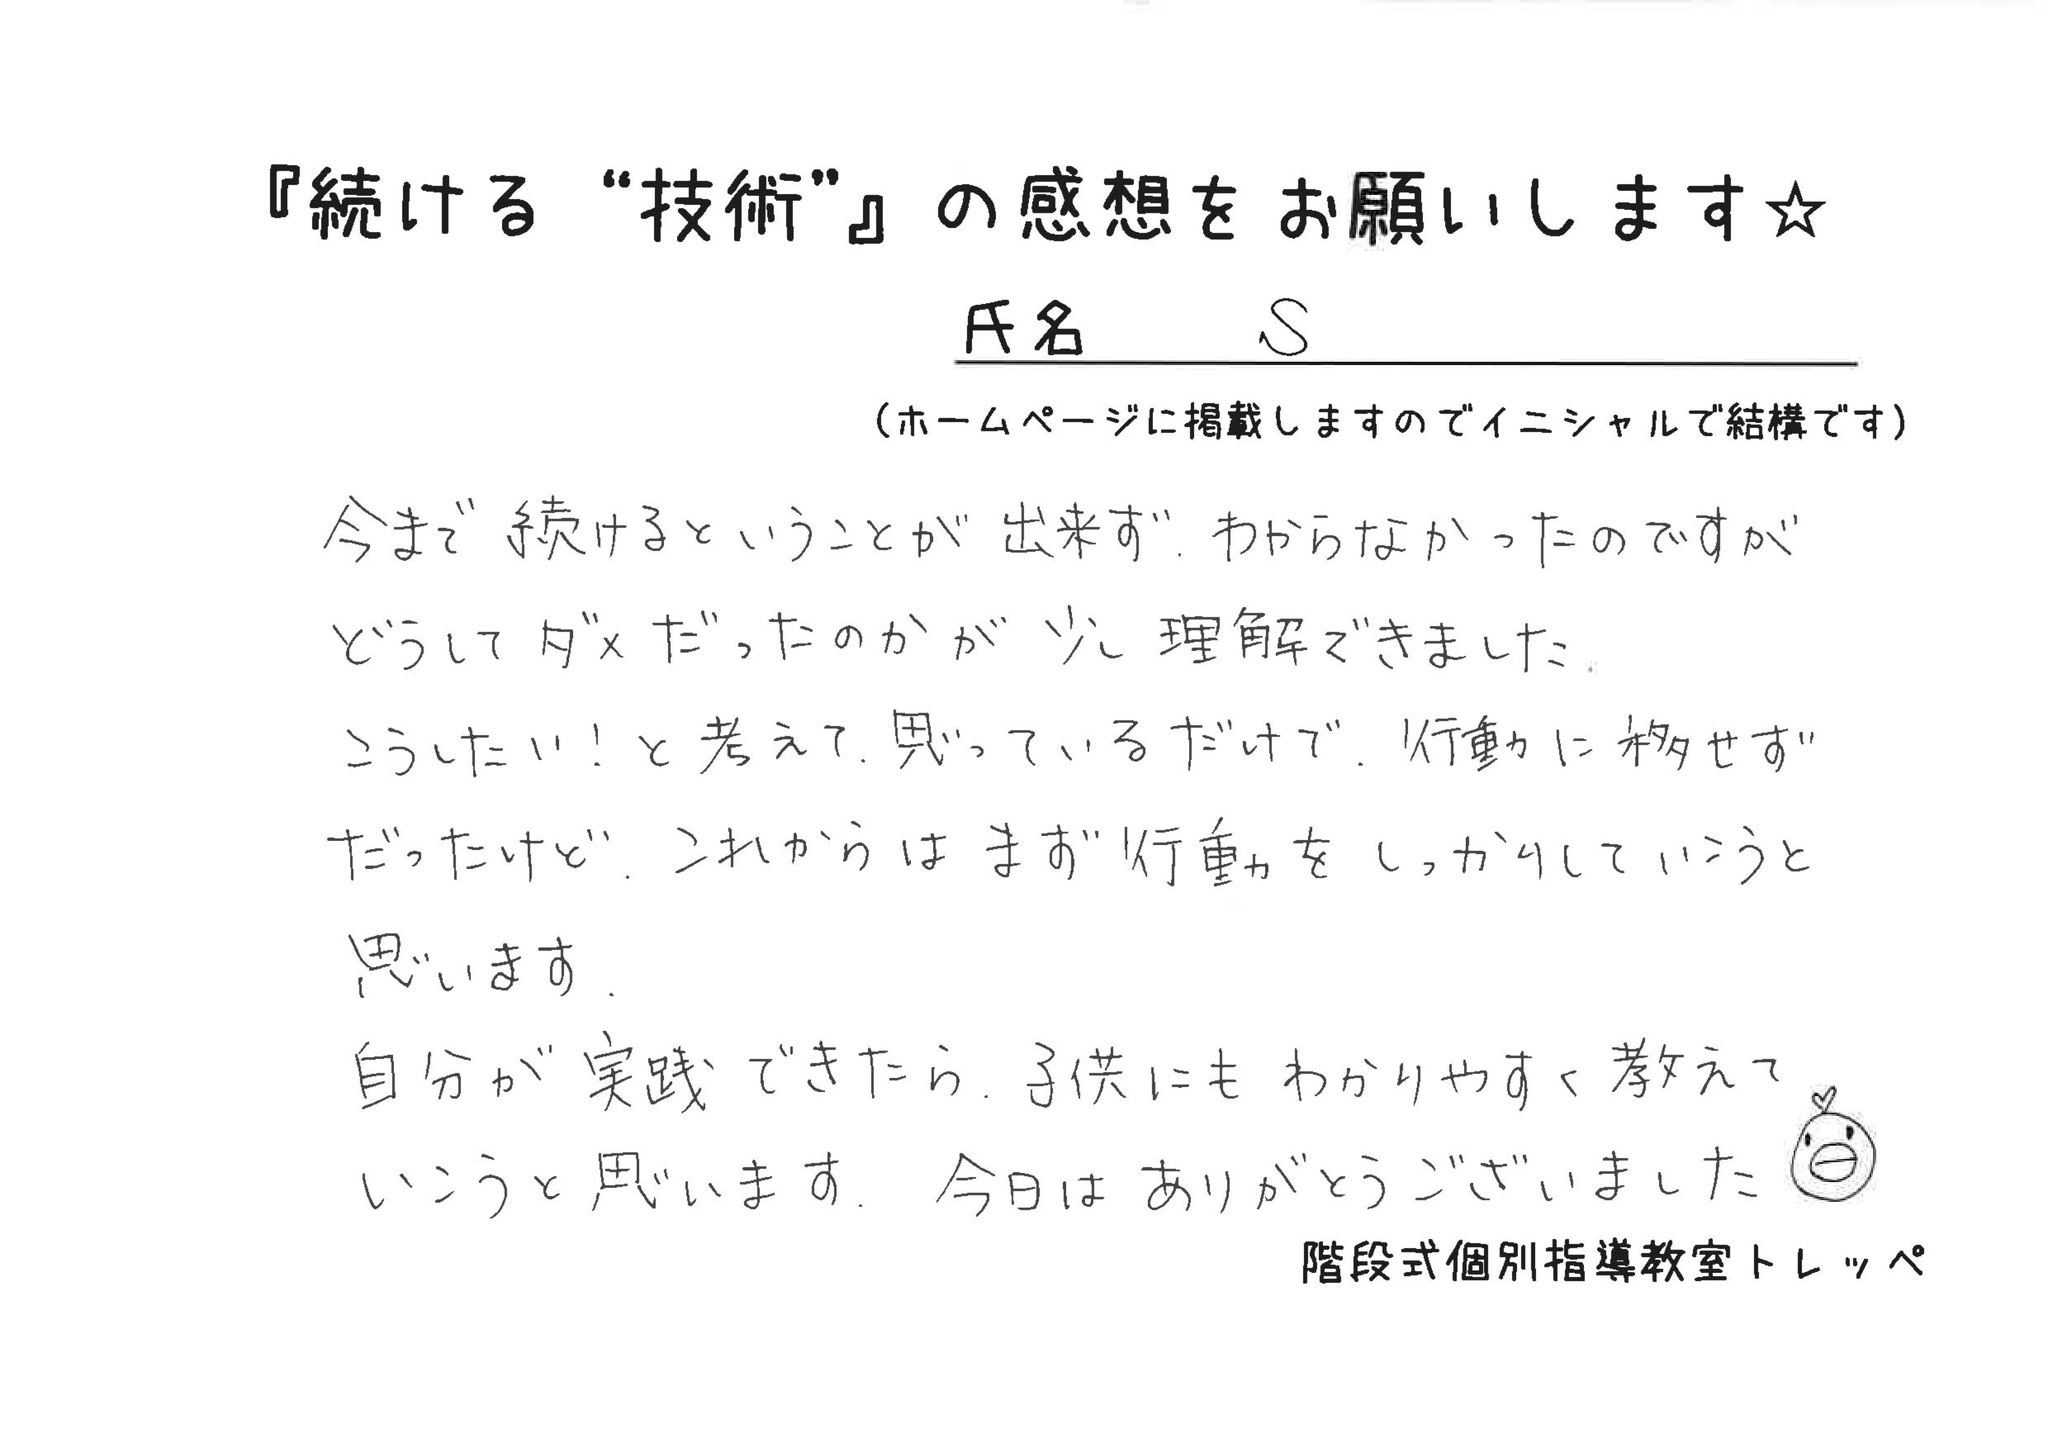 『続ける“技術”』の感想をお願いします☆
氏名 S
（ホームページに掲載しますのでイニシャルで結構です）
今まで続けるということが出来ず、わからなかったのですが
どうしてダメだったのかが少し理解できました。
こうしたい！と考えて、思っているだけで、行動に移せず
だったけど、これからはまず行動をしっかりしていこうと
思います。
自分が実践できたら、子供にもわかりやすく教えて
いこうと思います。今日はありがとうございました
階段式個別指導教室トレッペ